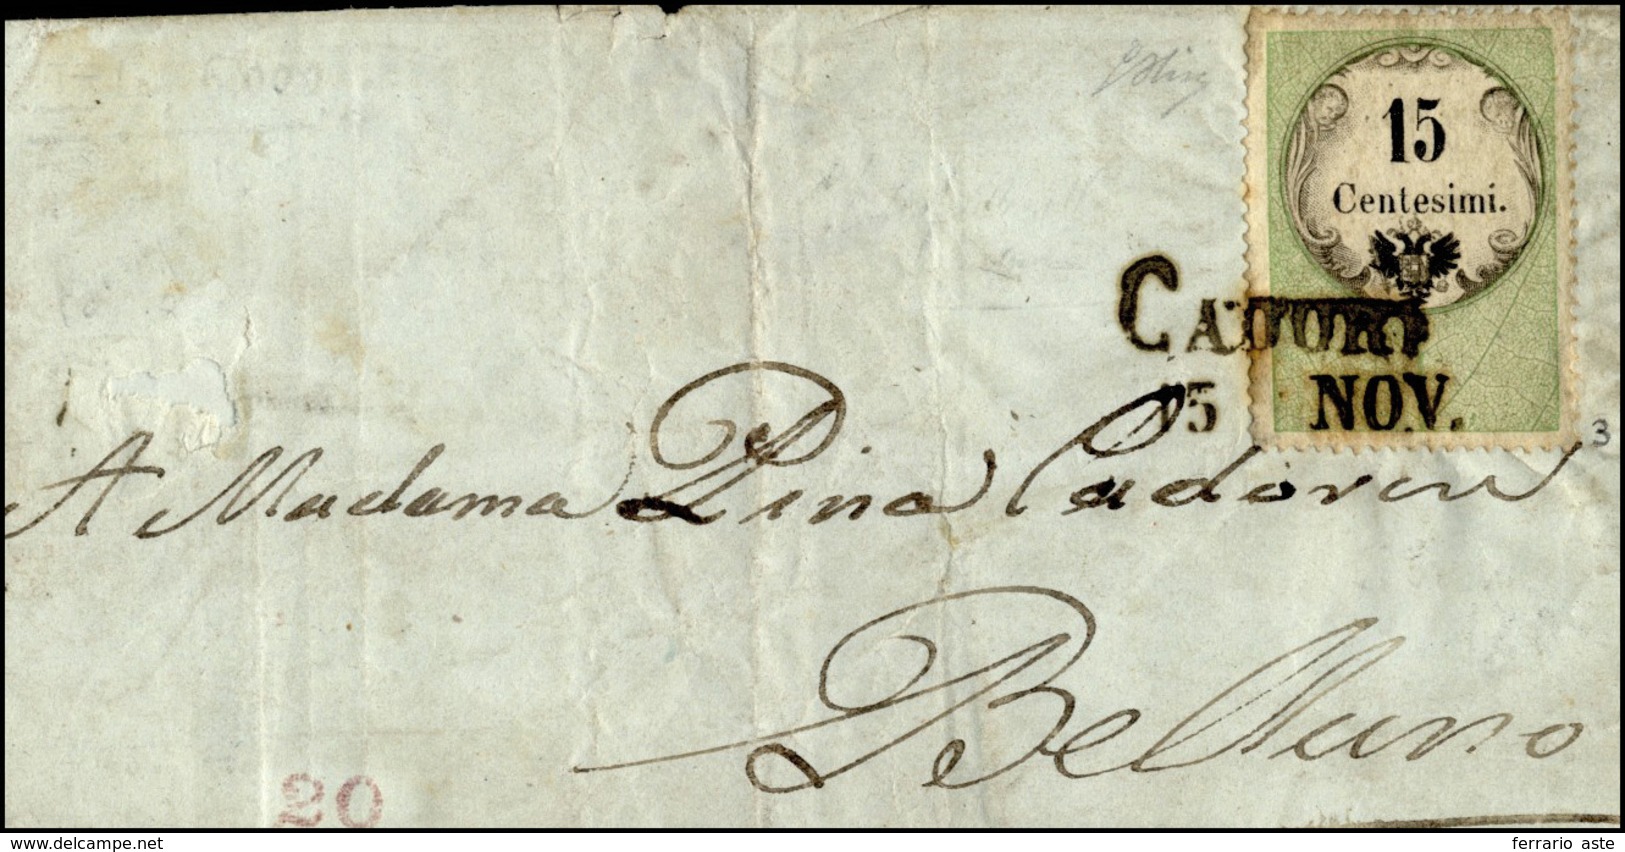 15
Centesimi.
CADORE
15 NOV.
3
A Madama Pina Cadorin
Belluno
20
delcampe.net
ferrario aste